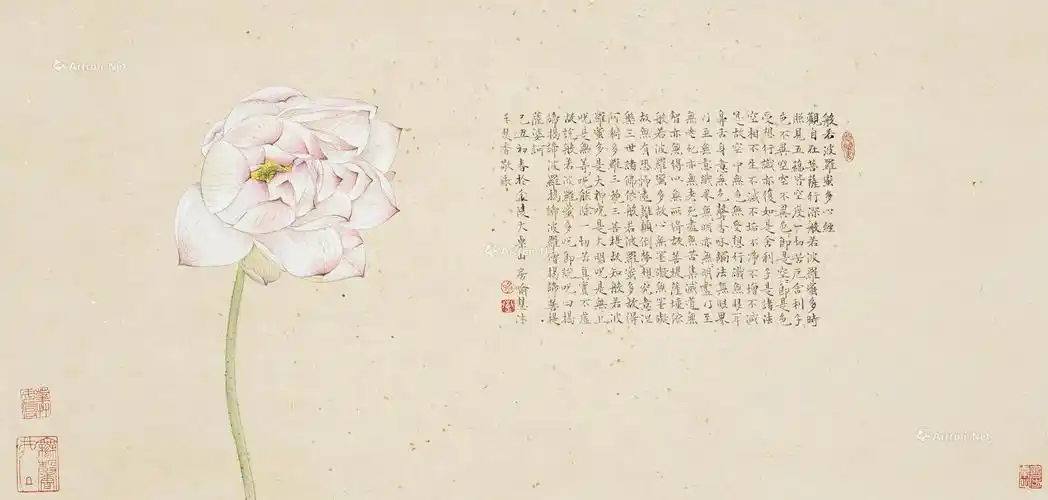 般若波羅蜜多心經
觀自在菩薩行深般若波羅蜜多時
照見五蘊皆空度一切苦厄舍利子
色不異空空不異色色即是空空即是色
受想行識亦復如是舍利子是諸法
空相不生不滅不垢不淨不增不減
是故空中無色無受想行識無眼耳
鼻舌身意無色聲香味觸法無眼界
乃至無意識界無無明亦無無明盡乃至
無老死亦無老死盡無苦集滅道無
智亦無得以無所得故菩提薩埵依
般若波羅蜜多故心無罣礙無罣礙
故無有恐怖遠離顛倒夢想究竟涅
槃三世諸佛依般若波羅蜜多故得
阿耨多羅三藐三菩提故知般若波
羅蜜多是大神咒是大明咒是無上
咒是無等等咒能除一切苦真實不虛
故說般若波羅蜜多咒即說咒曰揭
諦揭諦波羅揭諦波羅僧揭諦菩提
薩婆訶
己丑初春於金陵大東山房俞慧沐
手焚香敬錄
Artron.Net
Artron.Net
Artron.Net